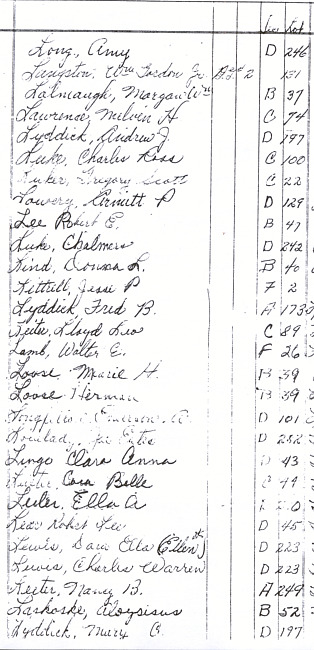 Lot
Long, Amy D 246
Langston, Wm Gordon Jr. 131
Lalmaugh, Morgan Wm B 37
Lawrence, Melvin H C 74
Lyddick, Andrew J. D 197
Luke, Charles Ross C 100
Gregory Scott C 22
Lowery, Arnett P D 129
Lee Robert E. B 47
Luke, Chalmers D 242
Lind, Donna L. B 40
Littrell, Jesse P F 2
Lyddick, Fred B. A 173
Lloyd Leo C 89
Lamb, Walter E. F 26
Loose Marie H. B 39
Loose Herman B 39
Emerson D 101
D 252
Lingo Clara Anna D 43
Cora Belle C 49
Luler, Ella A
Lear Robert Lee D 45
Lewis, Sara Etta (Ellen) D 223
Lewis, Charles Warren D 223
Leeter, Nancy B. A 249
Laskoske, Aloysisus B 52
Lyddick, Mary C. D 197